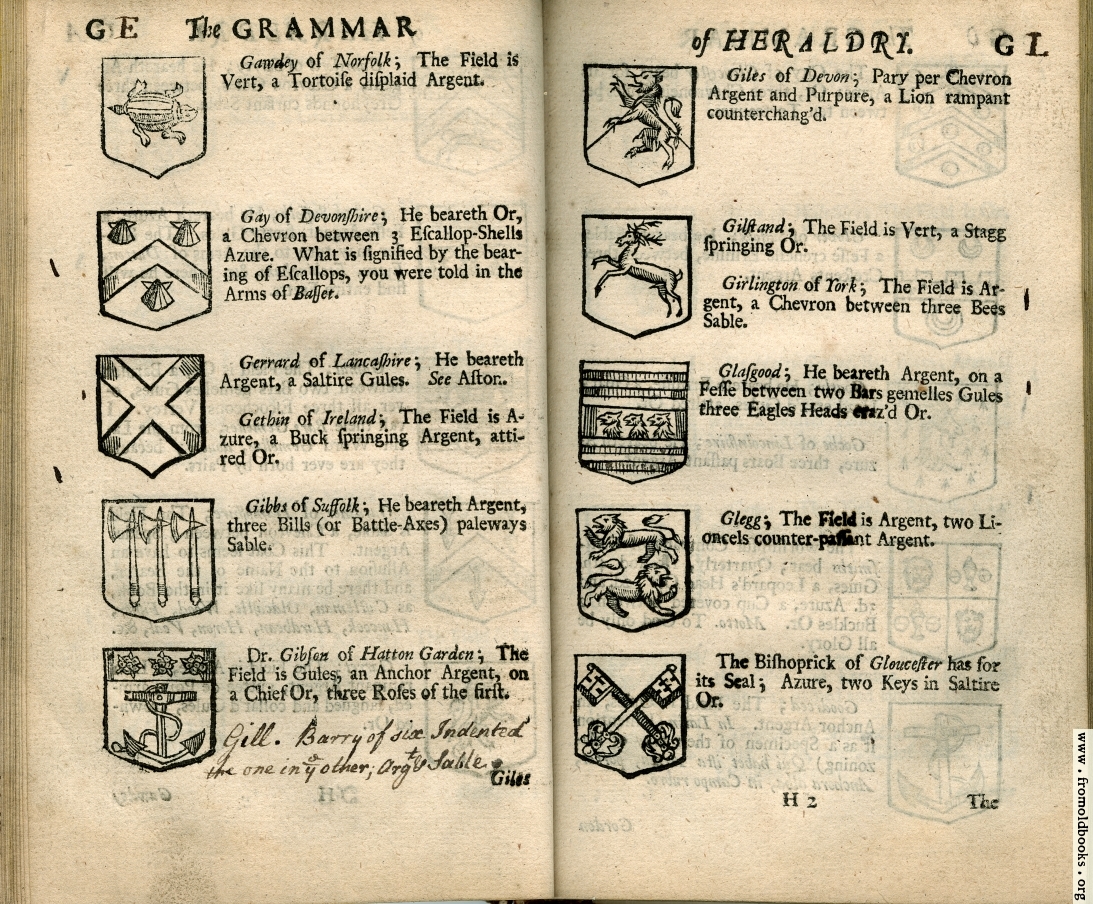 GE The GRAMMAR
Gawdey of Norfolk; The Field is
Vert, a Tortoiſe diſplaid Argent.
Gay of Devonſhire; He beareth Or,
a Chevron between 3 Eſcallop-Shells
Azure. What is ſignified by the bear-
ing of Eſcallops, you were told in the
Arms of Baſſet.
Gerrard of Lancaſhire; He beareth
Argent, a Saltire Gules. See Aſton.
Gethin of Ireland; The Field is A-
zure, a Buck ſpringing Argent, atti-
red Or.
Gibbs of Suffolk; He beareth Argent,
three Bills (or Battle-Axes) paleways
Sable.
Dr. Gibſon of Hatton Garden; The
Field is Gules, an Anchor Argent, on
a Chief Or, three Roſes of the firſt.
Gill. Barry of six Indented
the one in ye other; Argt & Sable.
Giles
of HERALDRY. GL
Giles of Devon; Pary per Chevron
Argent and Purpure, a Lion rampant
counterchang'd.
Gilſtand; The Field is Vert, a Stagg
ſpringing Or.
Girlington of York; The Field is Ar-
gent, a Chevron between three Bees
Sable.
Glaſgood; He beareth Argent, on a
Feſſe between two Bars gemelles Gules
three Eagles Heads eraz'd Or.
Glegg; The Field is Argent, two Li-
oncels counter-paſſant Argent.
The Biſhoprick of Glouceſter has for
its Seal; Azure, two Keys in Saltire
Or.
H 2 The
www.fromoldbooks.org